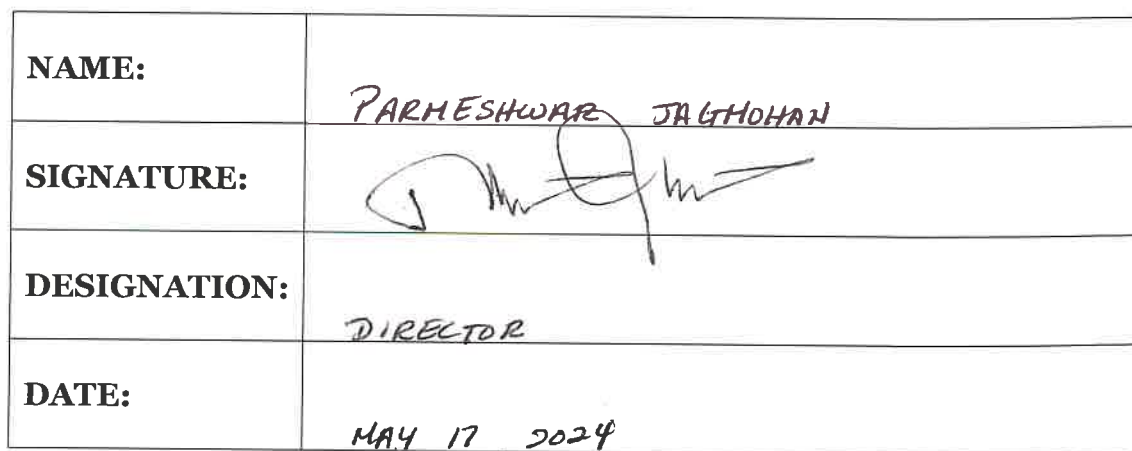 NAME: PARMESHWAR JAGMOHAN
SIGNATURE:
DESIGNATION: DIRECTOR
DATE: MAY 17 2024